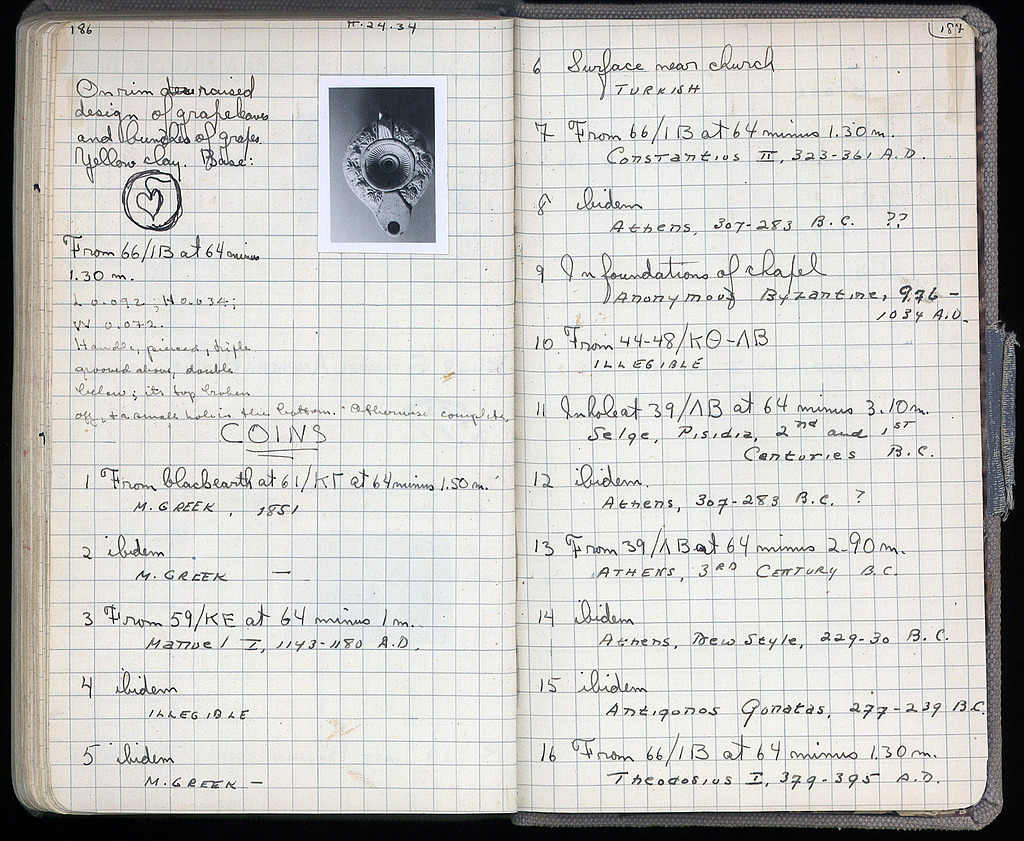 186
4.24.34
On rim raised
design of grape leaves
and bunches of grapes.
Yellow clay. Base:
From 66/ΙΒ at 64 minus
1.30 m.
L 0.092; H 0.034;
W 0.072.
Handle, pierced, triple
grooved above, double
below; its top broken
off, & a small hole in the bottom. Otherwise complete.
COINS
1 From black earth at 61/ΚΓ at 64 minus 1.50 m.
M. GREEK, 1851
2 ibidem
M. GREEK —
3 From 59/ΚΕ at 64 minus 1 m.
Manuel I, 1143-1180 A.D.
4 ibidem
ILLEGIBLE
5 ibidem
M. GREEK —
187
6 Surface near church
TURKISH
7 From 66/ΙΒ at 64 minus 1.30 m.
Constantius II, 323-361 A.D.
8 ibidem
Athens, 307-283 B.C. ??
9 In foundations of chapel
Anonymous Byzantine, 976-
1034 A.D.
10 From 44-48/ΚΘ-ΛΒ
ILLEGIBLE
11 In hole at 39/ΛΒ at 64 minus 3.10 m.
Selge, Pisidia, 2nd and 1ST
Centuries B.C.
12 ibidem.
Athens, 307-283 B.C. ?
13 From 39/ΛΒ at 64 minus 2.90 m.
ATHENS, 3RD CENTURY B.C.
14 ibidem
Athens, New Style, 229-30 B.C.
15 ibidem
Antigonos Gonatas, 277-239 B.C.
16 From 66/ΙΒ at 64 minus 1.30 m.
Theodosius I, 379-395 A.D.